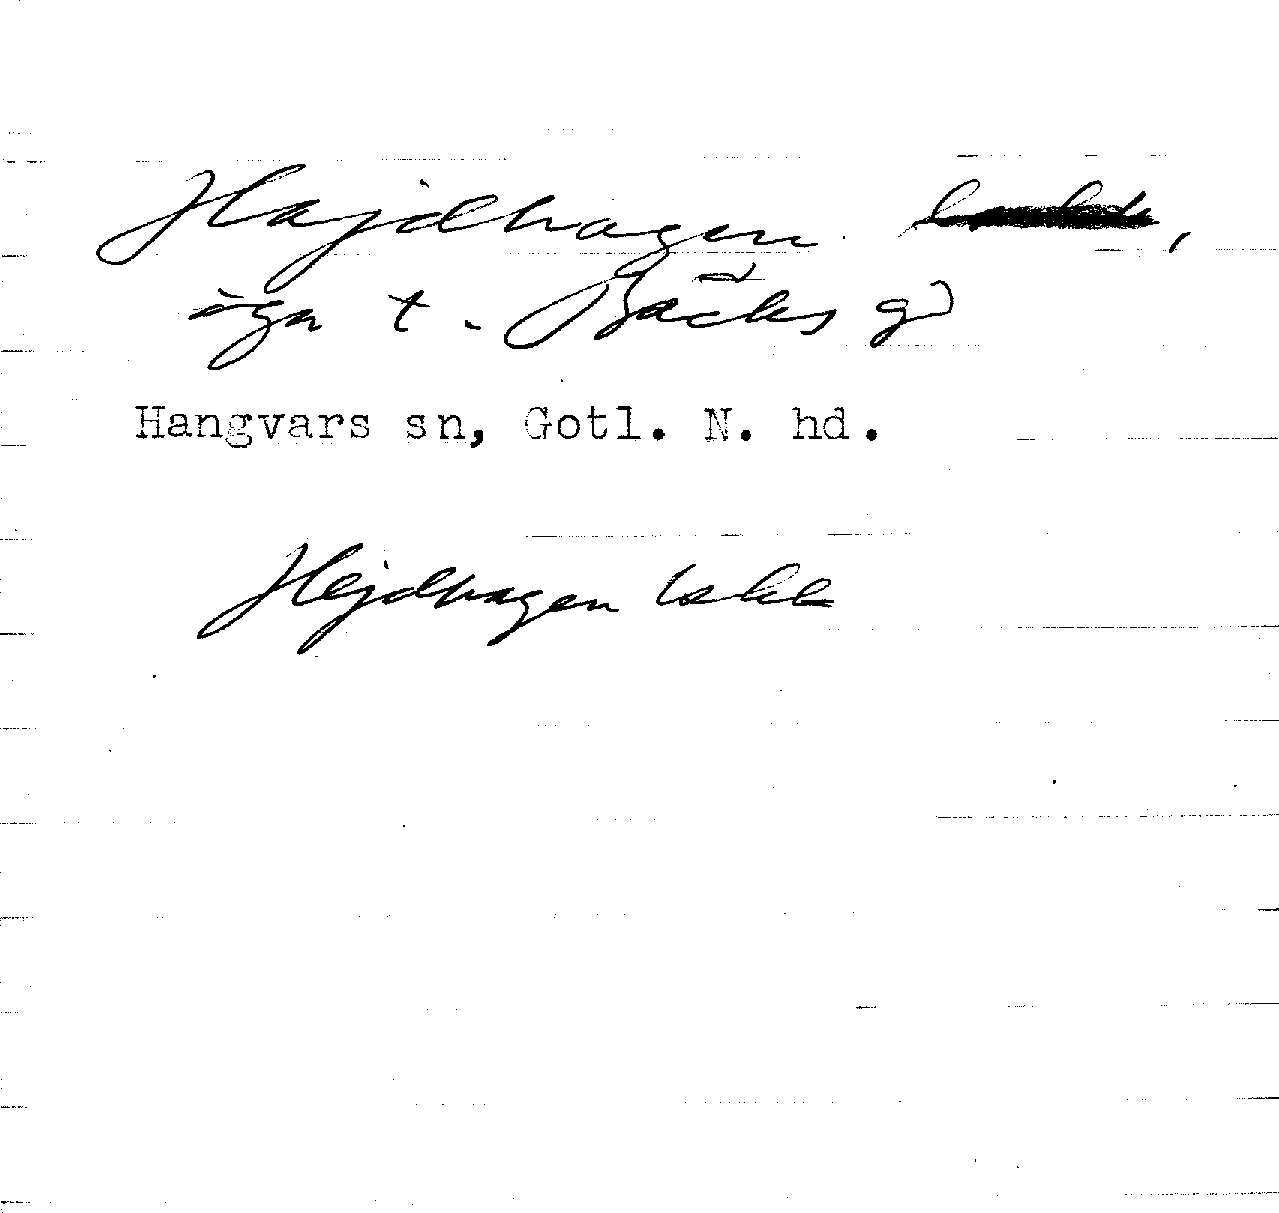 Hajdhagen ,
äga t. Bäcks gd
Hangvars sn, Gotl. N. hd.
Hejdhagen